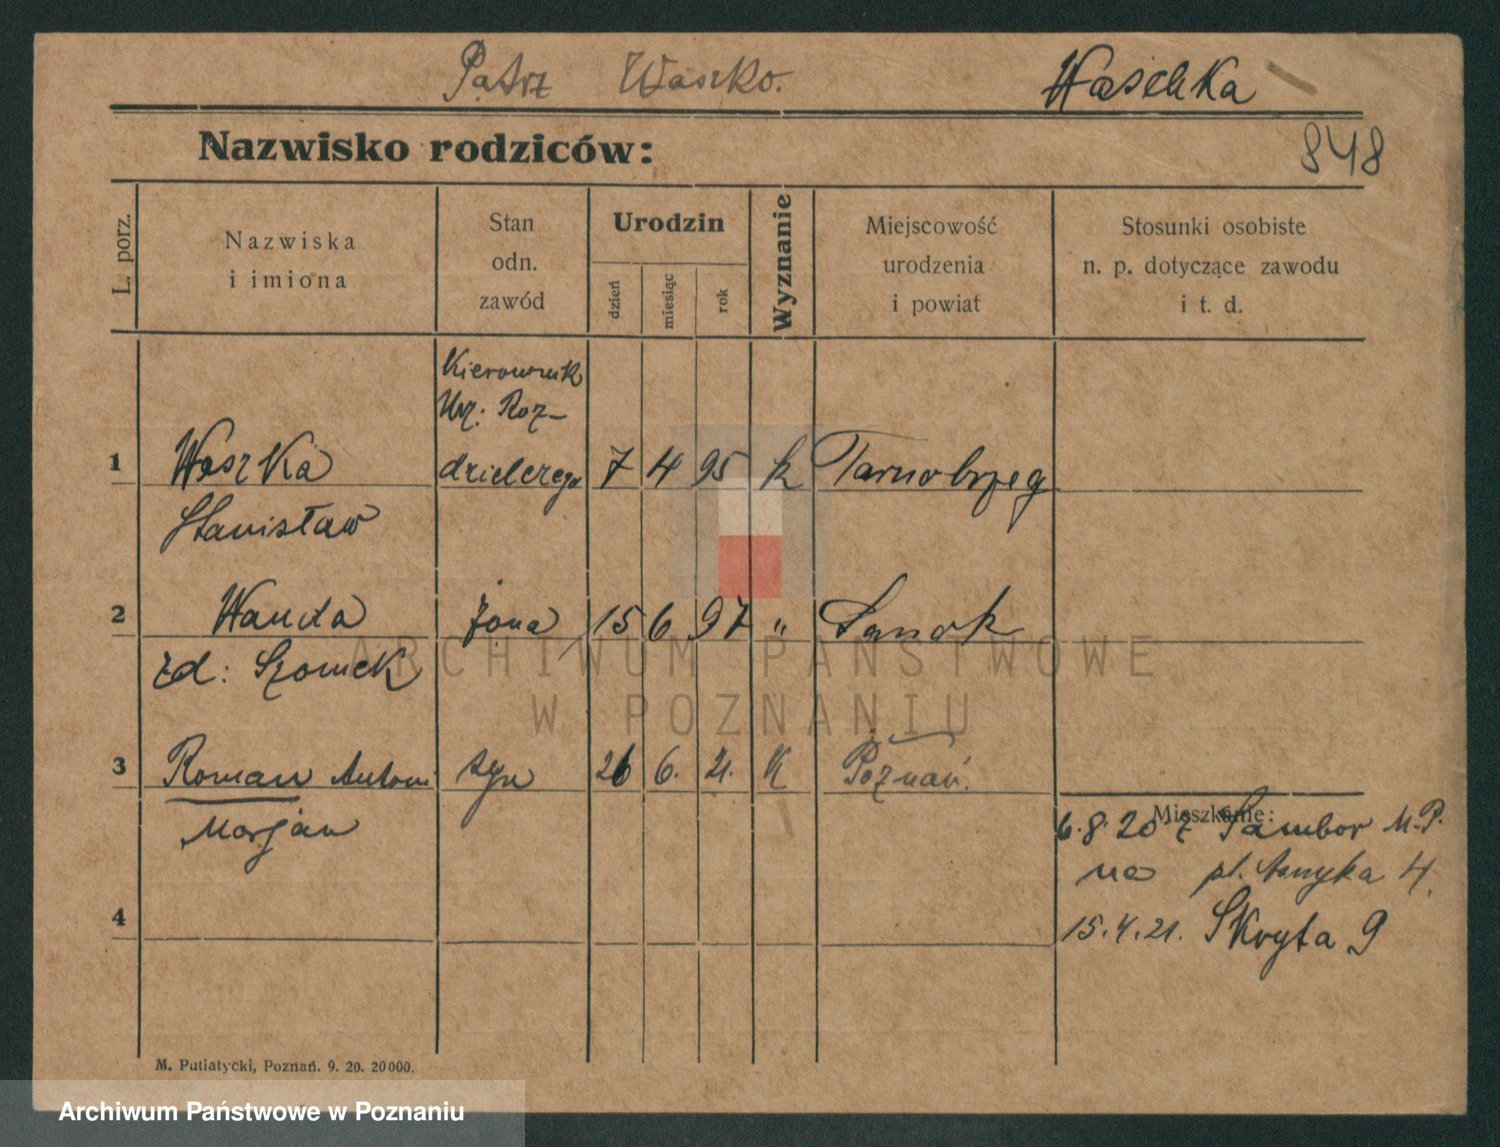 Patrz Waszko. Waschka
848
Nazwisko rodziców:
L. porz.
Nazwiska
i imiona
Stan
odn.
zawód
Urodzin
dzień
miesiąc
rok
Wyznanie
Miejscowość
urodzenia
i powiat
Stosunki osobiste
n. p. dotyczące zawodu
i t. d.
Kierownik
Urz. Roz-
1 Waszka dzielczego 7 4 95 k Tarnobrzeg
Stanisław
2 Wanda żona 15 6 97 " Sanok
zd: Szomek
3 Roman Antoni syn 26 6. 21. K Poznań.
Marjan
Mieszkanie:
6.8.20 z Sambor M.P.
na pl. Asnyka 4.
4
15.4.21. Skryta 9
M. Putiatycki, Poznań. 9. 20. 20000.
ARCHIWUM PAŃSTWOWE
W POZNANIU
Archiwum Państwowe w Poznaniu